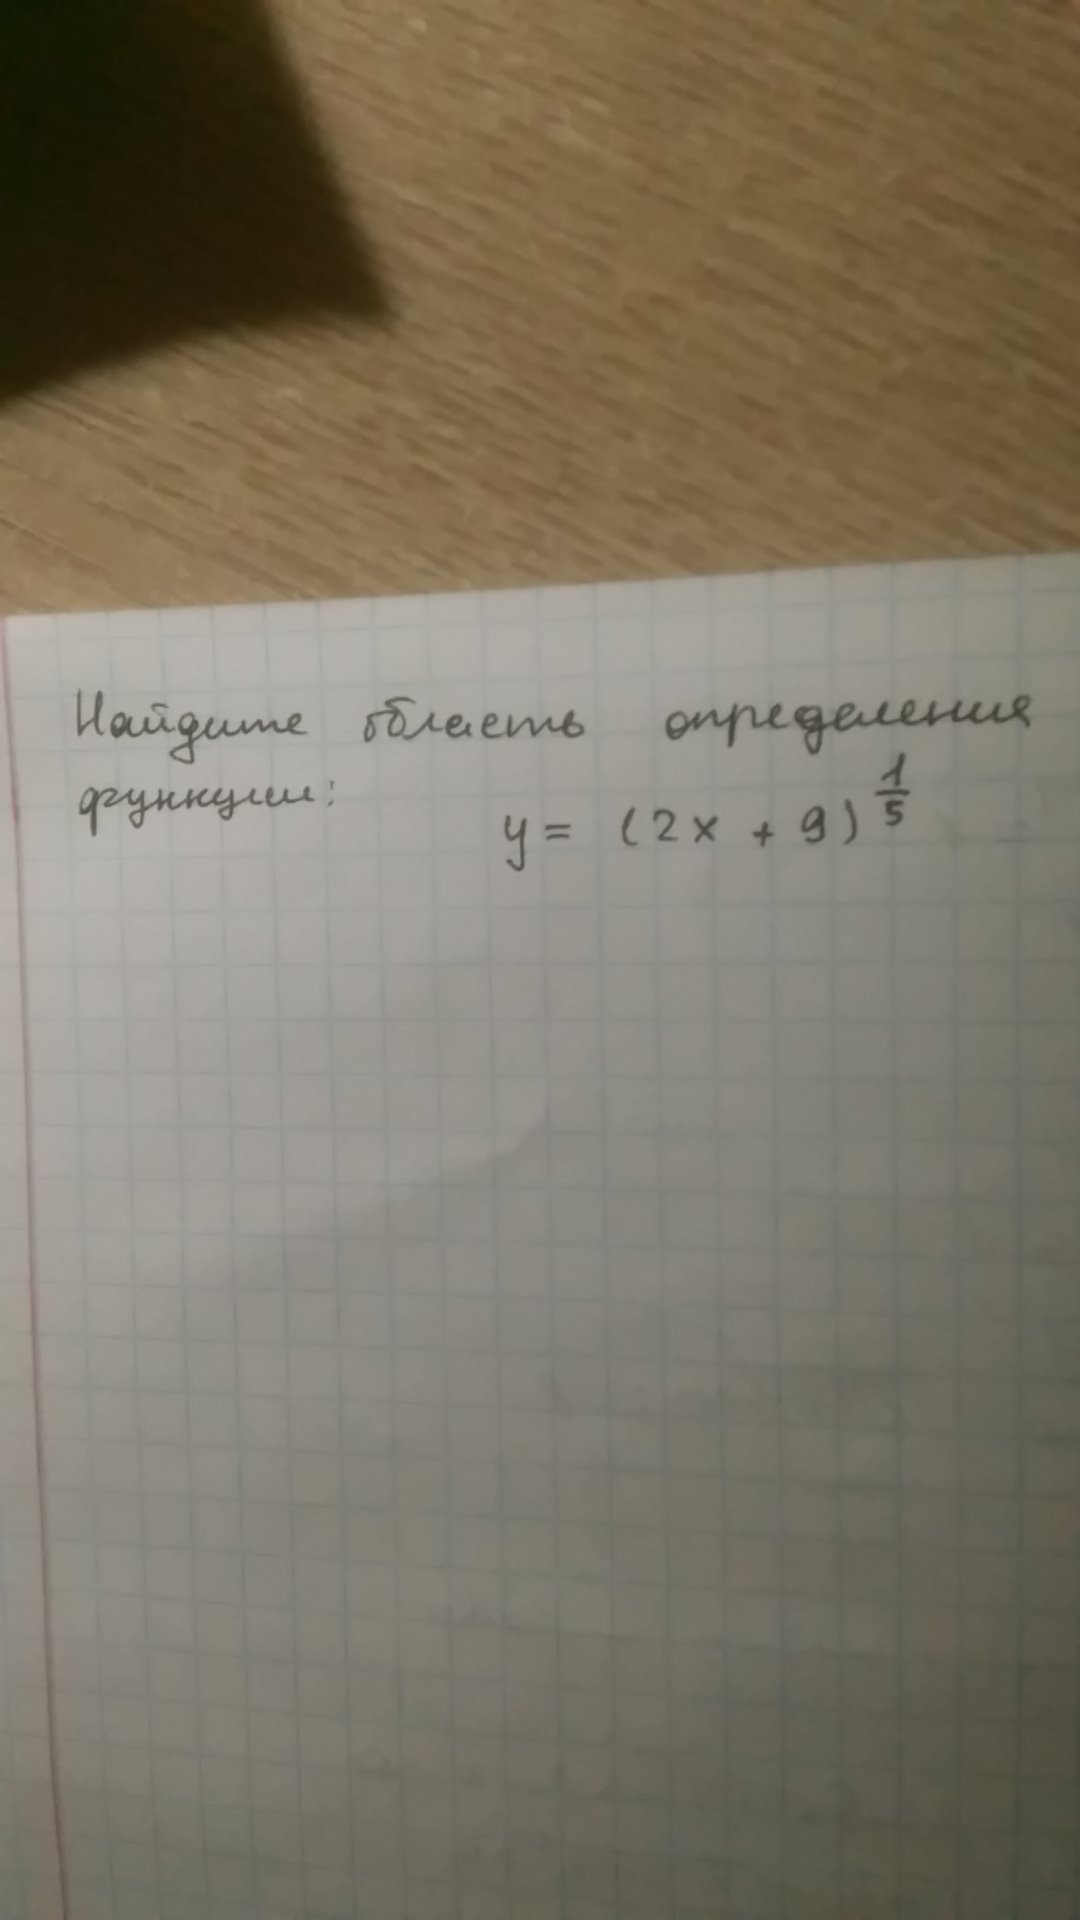 Найдите область определения
функции:
y = (2x + 9)^{\frac{1}{5}}